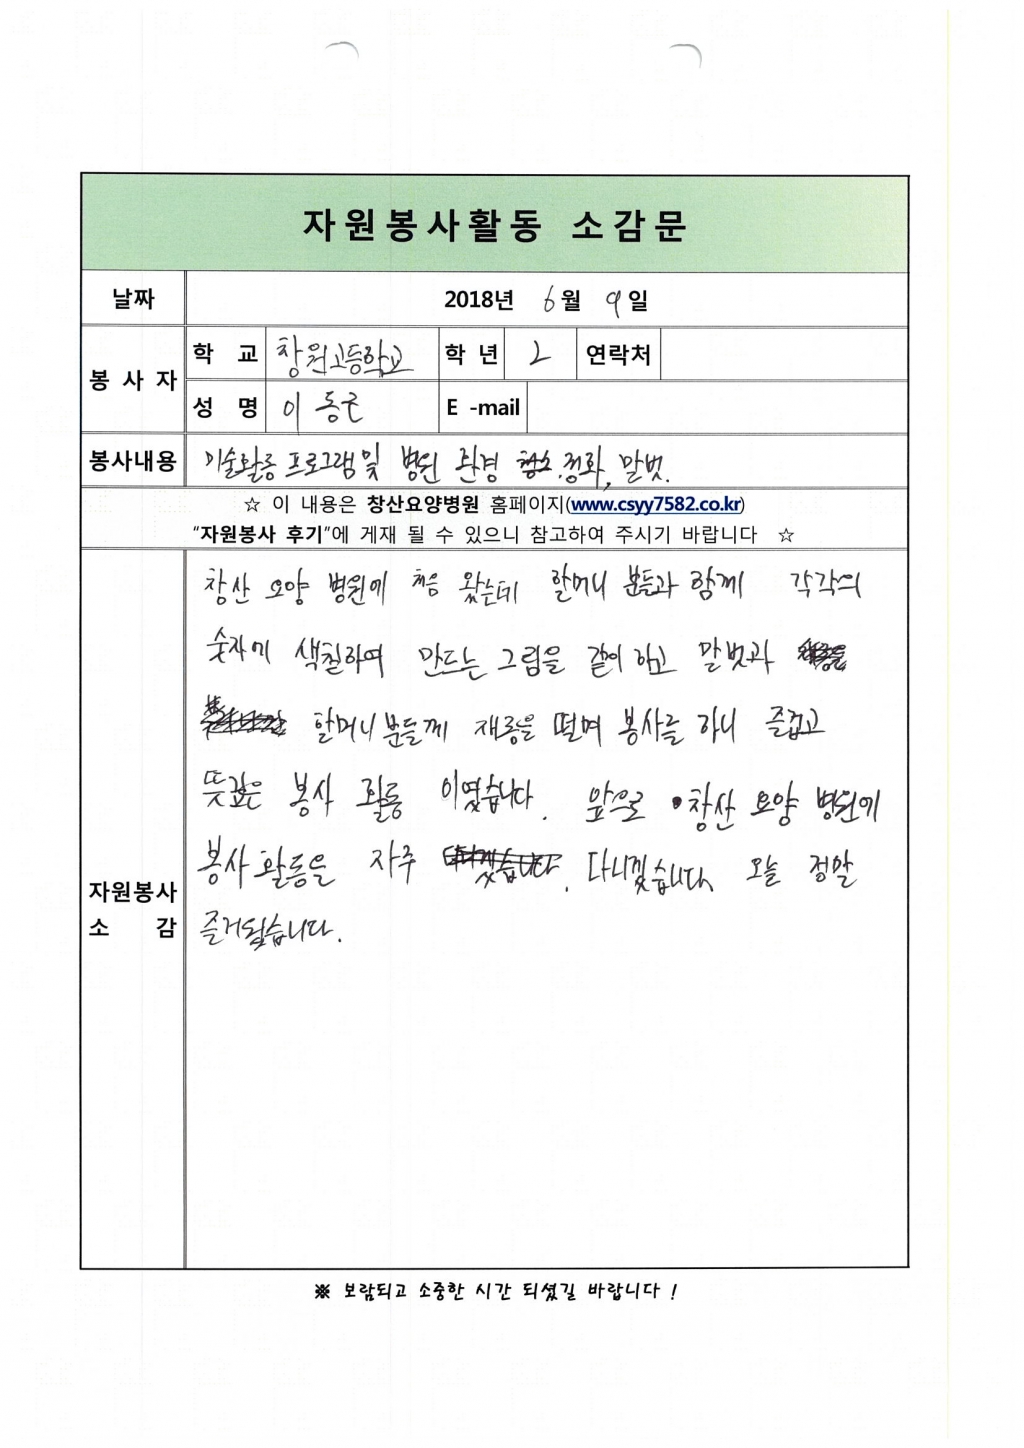 자원봉사활동 소감문
날짜 2018년 6월 9일
봉사자 학교 창원고등학교 학년 2 연락처
성명 이동근 E-mail
봉사내용 미술활동 프로그램 및 병원 환경 정화, 말벗.
☆ 이 내용은 창산요양병원 홈페이지(www.csyy7582.co.kr)
"자원봉사 후기"에 게재 될 수 있으니 참고하여 주시기 바랍니다 ☆
자원봉사 소감
창산 요양 병원에 처음 왔는데 할머니 분들과 함께 각각의
숫자에 색칠하여 만드는 그림을 같이 하고 말벗과
할머니 분들께 재롱을 떨며 봉사를 하니 즐겁고
뜻깊은 봉사 활동 이였습니다. 앞으로 창산 요양 병원에
봉사 활동을 자주 다니겠습니다. 오늘 정말
즐거웠습니다.
※ 보람되고 소중한 시간 되셨길 바랍니다 !